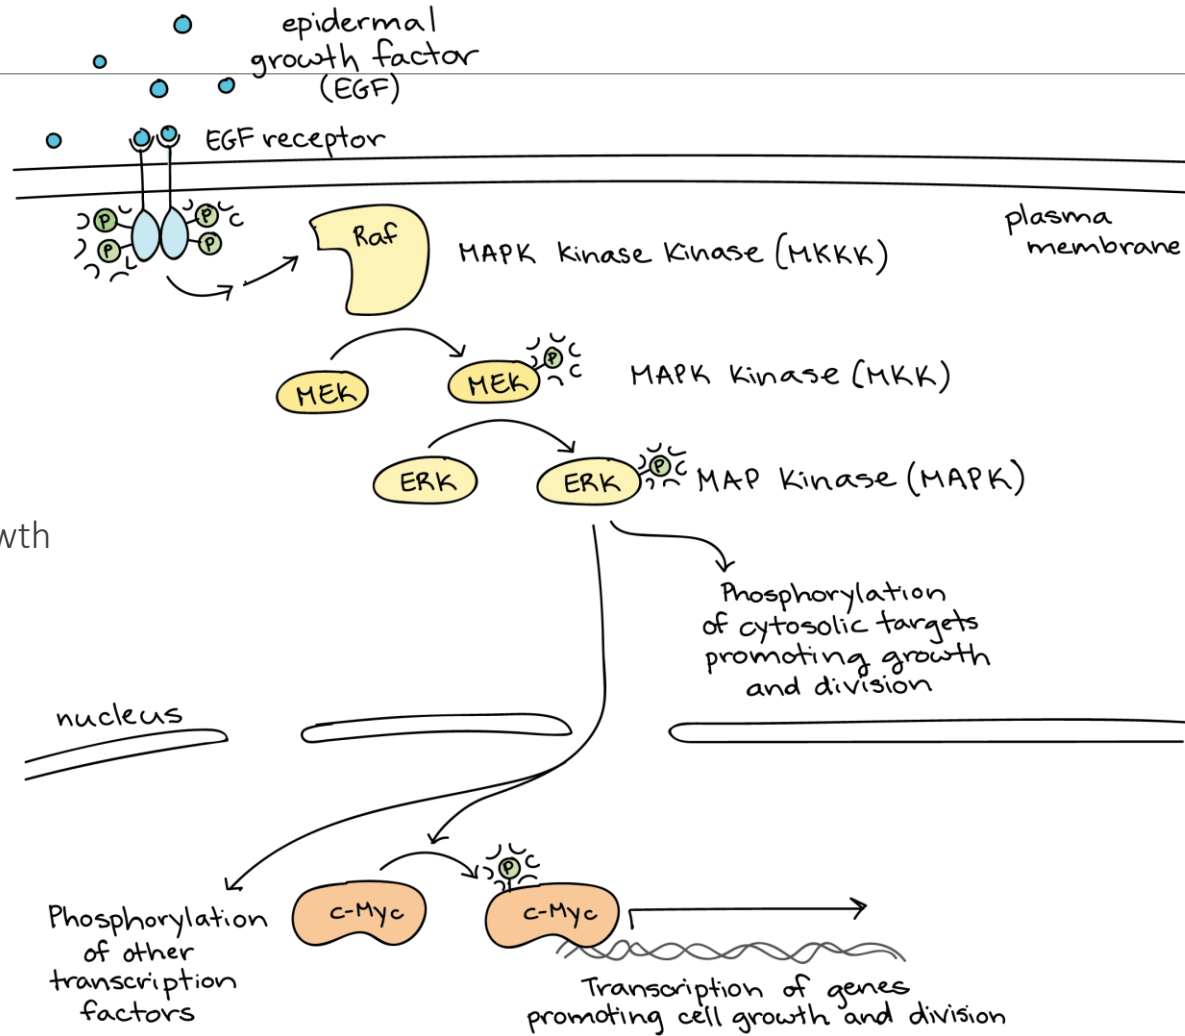 epidermal
growth factor
(EGF)
EGF receptor
P
P
P
P
Raf
MAPK Kinase Kinase (MKKK)
plasma
membrane
MEK
MEK
P
MAPK Kinase (MKK)
ERK
ERK
P
MAP Kinase (MAPK)
wth
Phosphorylation
of cytosolic targets
promoting growth
and division
nucleus
P
c-Myc
c-Myc
Phosphorylation
of other
transcription
factors
Transcription of genes
promoting cell growth and division